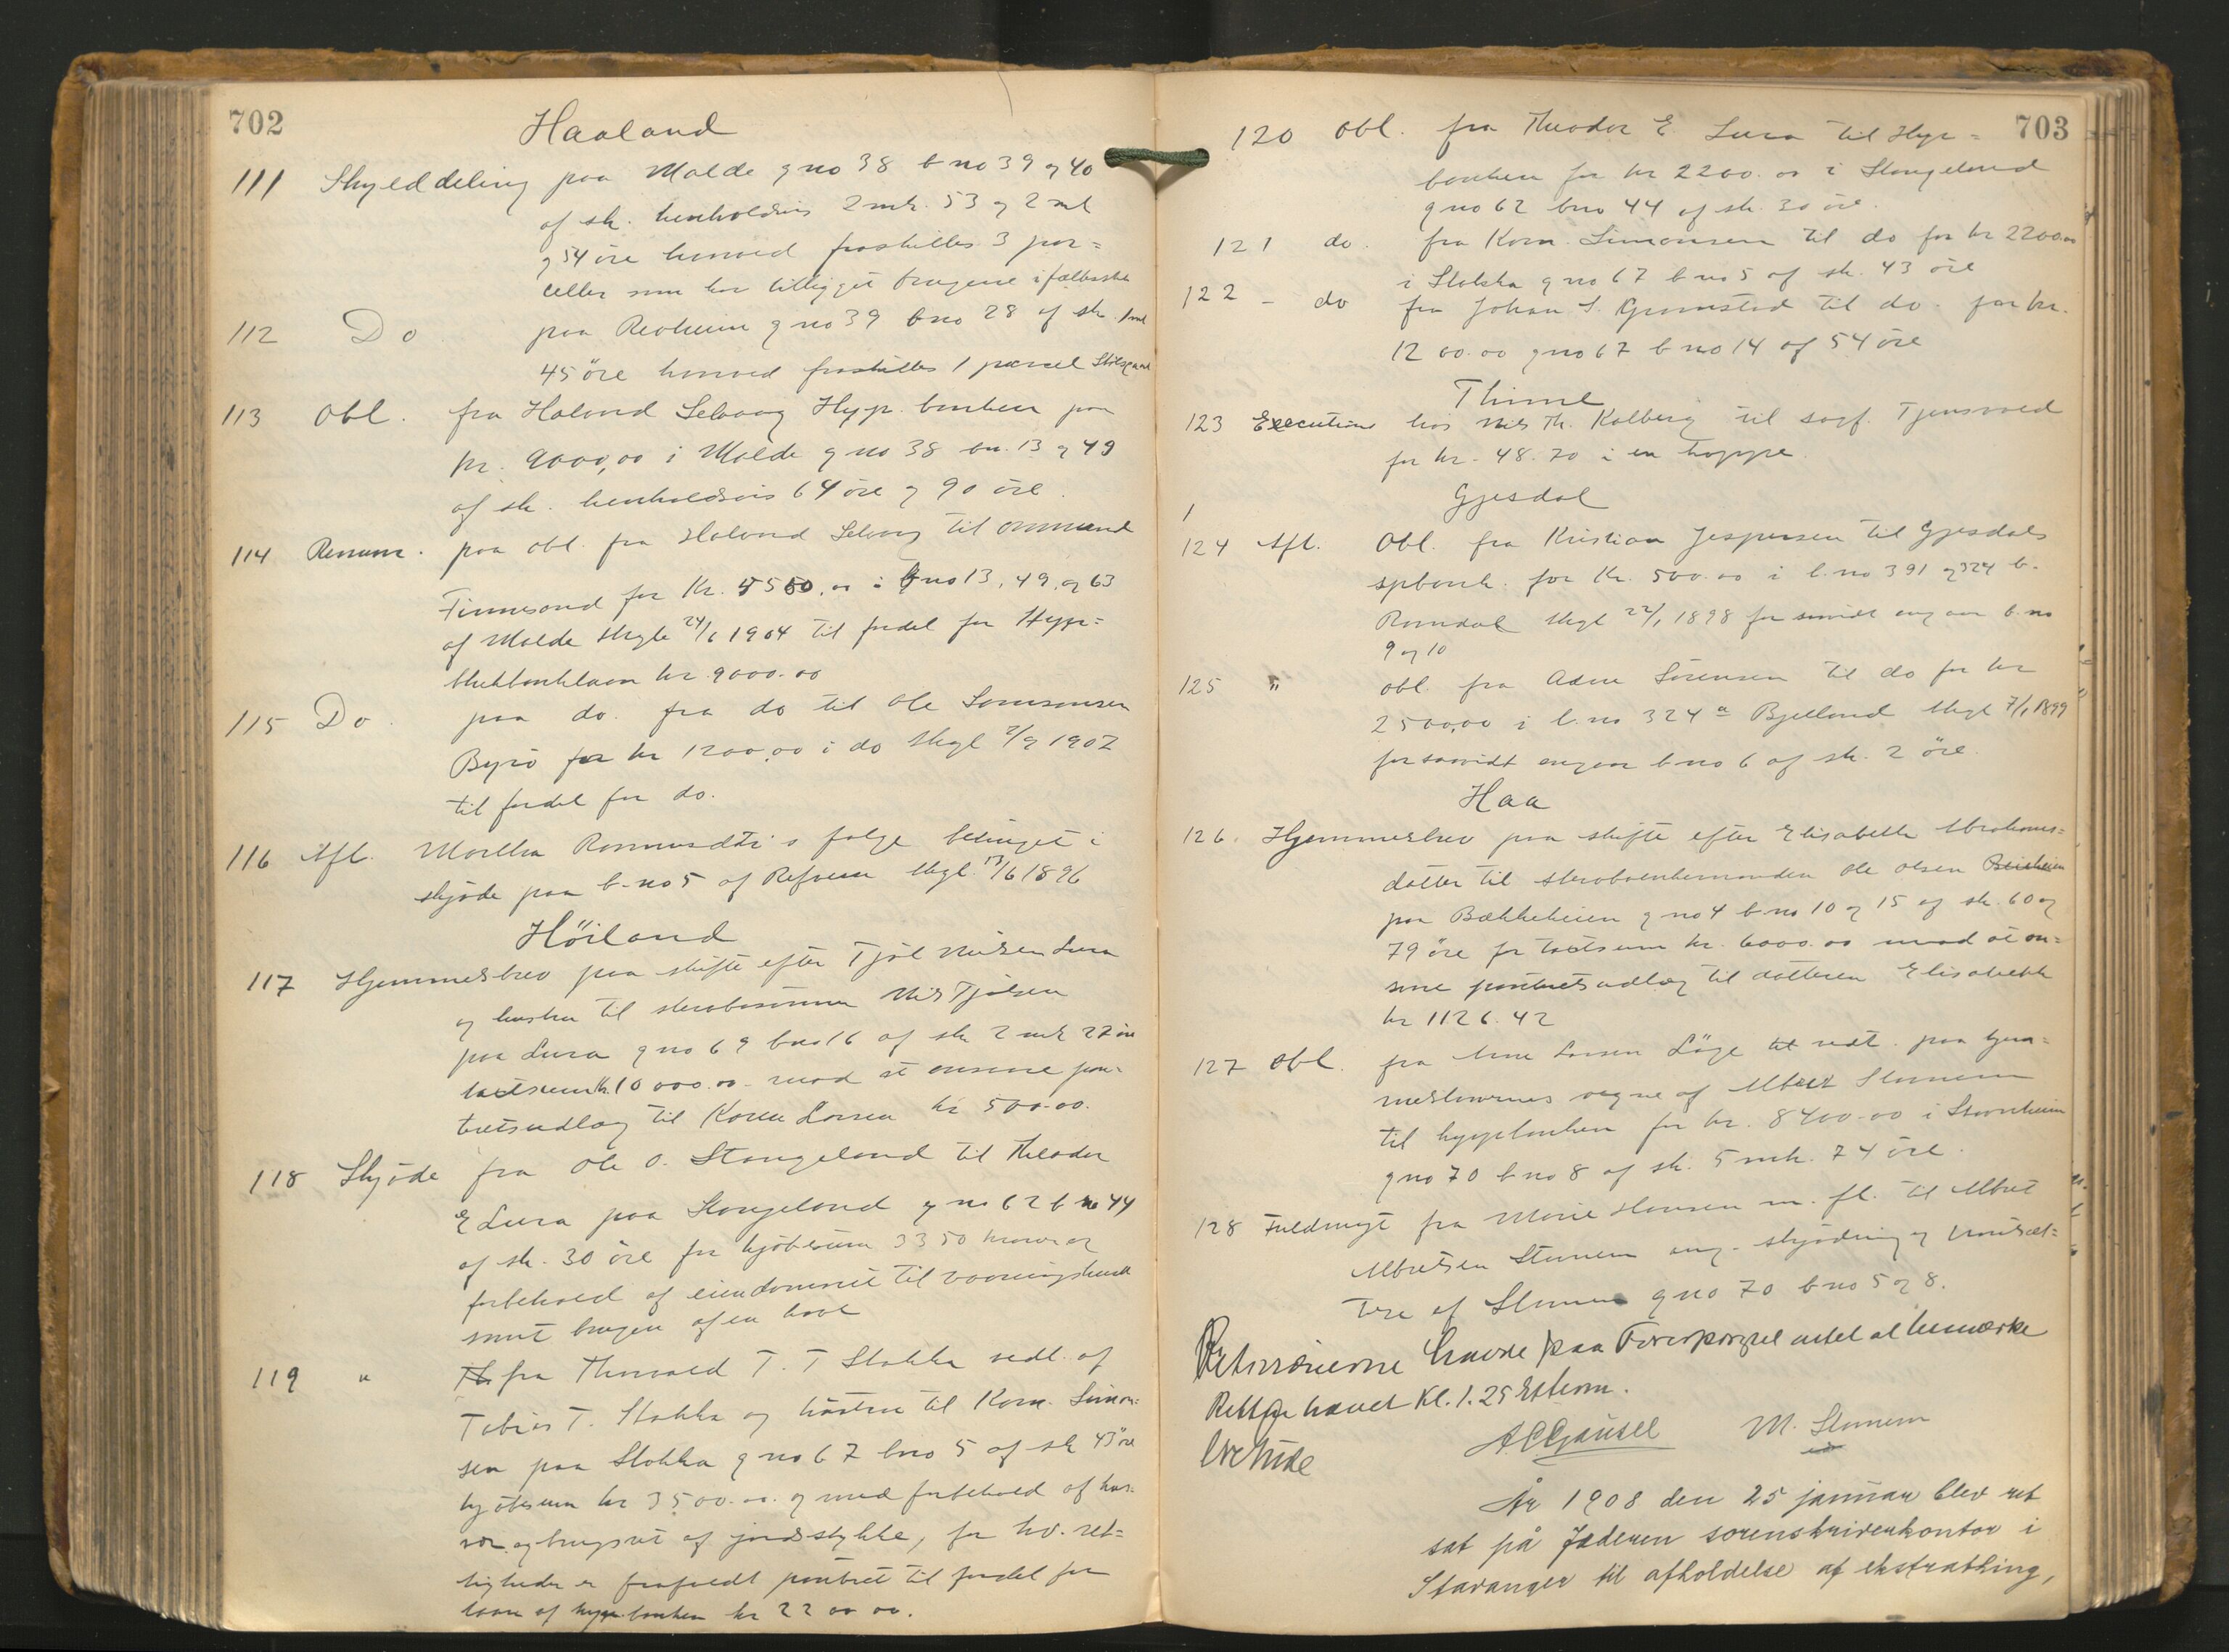 702
Haaland
111 Skylddeling paa Molde gno 38 bno 39 og 40
af sk. henholdsvis 2 mk. 53 og 2 mk
og 54 öre hvorved fraskilles 3 par=
celler som har tilligget brugene i fælleskab
112 Do paa Revheim gno 39 bno 28 af sk. 1 mk
45 öre hvorved fraskilles 1 parcel
113 Obl. fra Halvord Selvaag Hyp. banken paa
kr. 9000,00 i Molde gno 38 bn. 13 og 49
af sk. henholdsvis 64 öre og 90 öre.
114 Renunc. paa obl. fra Halvord Selvaag til Ommund
Finnesand for Kr. 5500,00 i bno 13, 49, og 63
af Molde thgl 24/6 1904 til fordel for Hypo=
thekbanklaan kr. 9000.00
115 Do. paa do. fra do til Ole Samsonsen
Byrö for kr 1200,00 i do thgl 2/9 1907
til fordel for do.
116 Afl. Martha Rasmusdtr's følge betinget i
skjøde paa b-no 5 af Refsum thgl. 13/6 1896
Höiland
117 Hjemmelsbrev paa skifte efter Tjöl Nielsen Lura
og hustru til sterbosönnen Nils Tjölsen
paa Lura gno 69 bno 16 af sk 2 mk 27 öre
taxtsum kr. 10 000.00 - mod at ansvare pan-
tretsudlæg til Karen Larsen kr 500.00.
118 Skjøde fra Ole O. Stangeland til Theodor
E Lura paa Stangeland gno 62 bno 44
af sk. 30 öre for kjøbesum 3350 kroner og
forbehold af eiendomsret til vaaningshuset
samt brugen af en have
119 " fra Thorvald T. T Stokka vedt. af
Tobias T. Stokka og hustru til Korn. Simon-
sen paa Stokka gno 67 bno 5 af sk 43 öre
kjøbesum kr 3500.00. og med forbehold af hus-
vær og brugsret af jordstykke, for hv. ret=
tigheder er frafaldt pantret til fordel for
laan af hyp. banken kr 2200 00.
703
120 Obl. fra Theodor E. Lura til Hyp=
banken for kr 2200.00 i Stangeland
gno 62 bno 44 af sk. 30 öre.
121 do. fra Korn. Simonsen til do for kr 2200.00
i Stokka gno 67 bno 5 af sk. 43 öre
122 - do fra Johan S. Gromstad til do. for kr.
1200.00 gno 67 bno 14 af 54 öre
Thime
123 Execution hos Nils Th. Kalberg til sagf. Tjensvold
for kr. 48.70 i en hoppe.
Gjesdal
124 Afl. Obl. fra Kristian Jespersen til Gjesdals
spbank. for Kr. 500.00 i l.no 391 og 324 b.
Romdal thgl 22/1 1898 for saavidt angaar b. no
9 og 10
125 " obl. fra Adne Sörensen til do for kr
2500,00 i l. no 324 a Bjelland thgl 7/1 1899
for saavidt angaar bno 6 af sk. 2 öre.
Haa
126. Hjemmelsbrev paa skifte efter Elisabeth Abrahams=
datter til sterboenkemanden Ole Olsen
paa Bækkeheien gno 4 bno 10 og 15 af sk. 60 og
79 öre for taxtsum kr. 6000.00 mod at an=
svare pantretsudlæg til datteren Elisabeth
kr 1126.42
127 Obl. fra Arne Larsen Löge vedt. paa hjem=
melshavernes vegne af Albret Stunem
til hypbanken for kr. 8400.00 i Stavnheim
gno 70 bno 8 af sk. 5 mk. 74 öre.
128 Fuldmagt fra Marie Hansen m. fl. til Albret
Albretsen Stunem ang. skjødning og pantsæt=
telse af Stunem gno 70 bno 5 og 8.
havde paa Forespørgsel intet at bemærke
Retten hævet Kl. 1.25 Efterm.
A C Gausel M. Stunem
År 1908 den 25 januar blev ret
sat på Jæderen sorenskriverkontor i
Stavanger til afholdelse af ekstrathing,